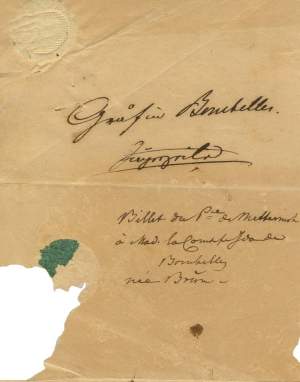 Gräfin Bombelles.
Billet du Pce de Metternich
à Mad. la Comtesse Ida de
Bombelles
née Brun